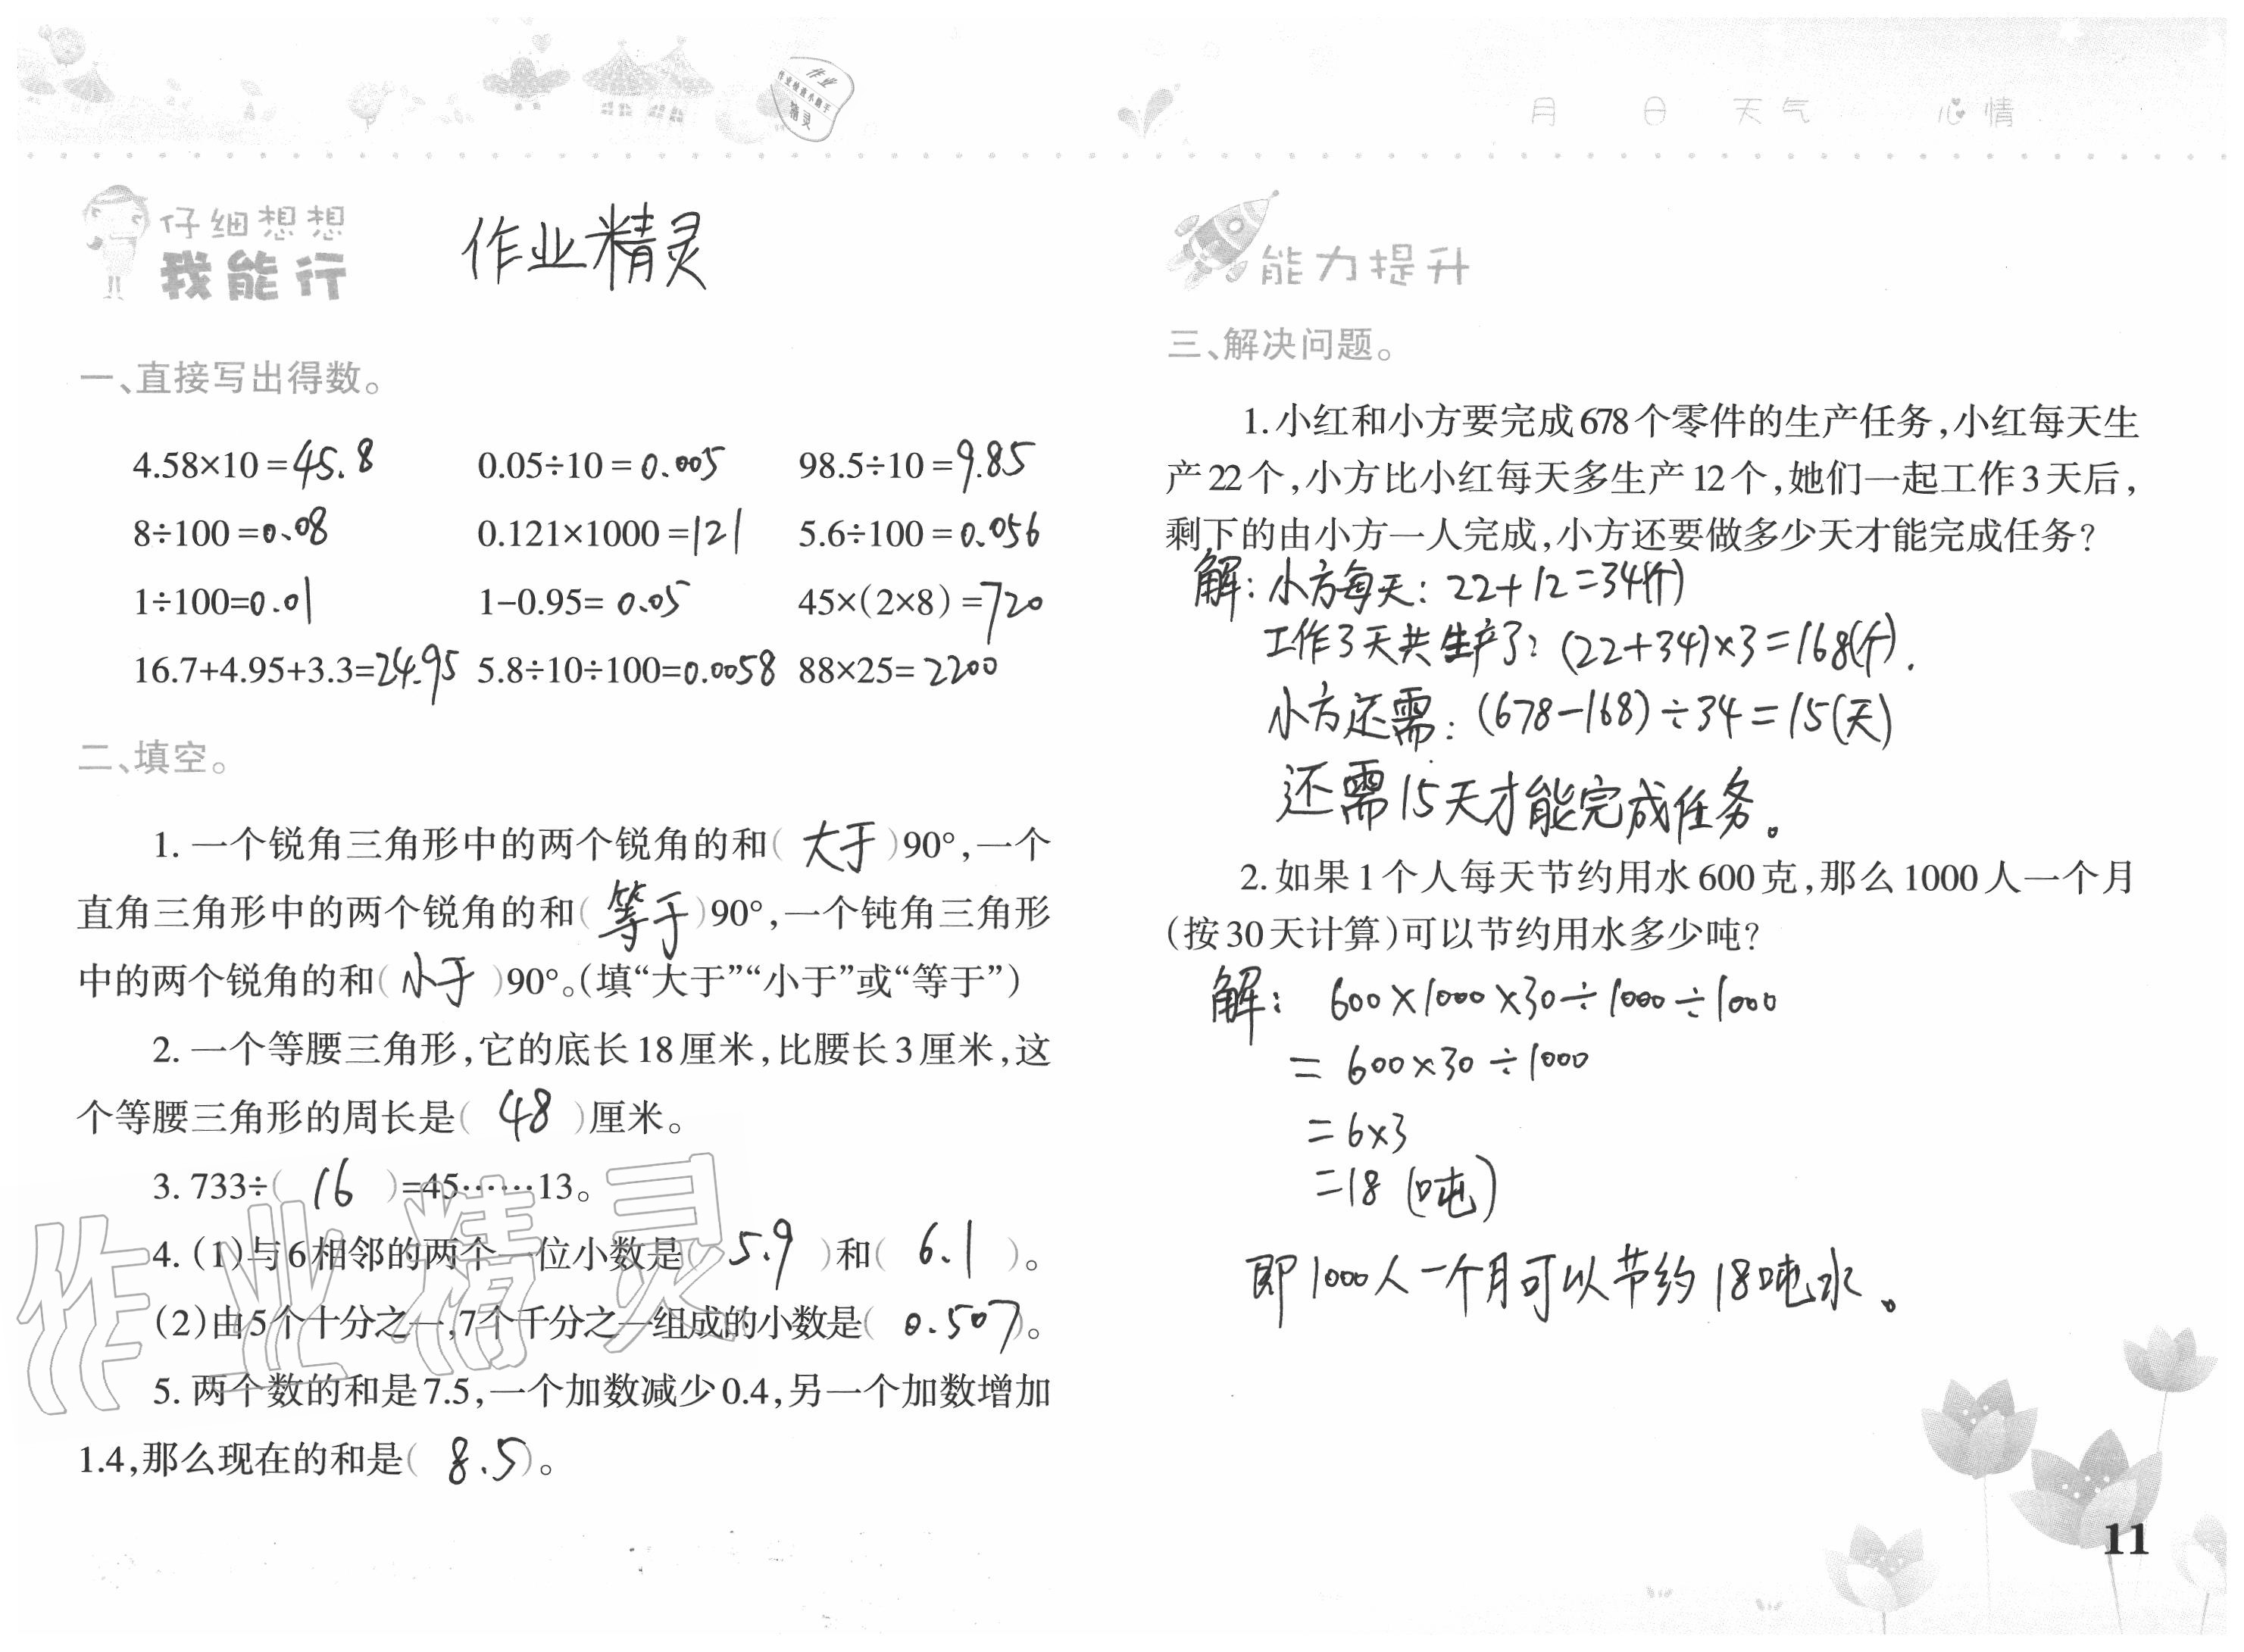 作业
作业检查小助手
精灵
月 日 天气 心情
仔细想想
我能行
作业精灵
一、直接写出得数。
4.58×10=45.8 0.05÷10=0.005 98.5÷10=9.85
8÷100=0.08 0.121×1000=121 5.6÷100=0.056
1÷100=0.01 1-0.95=0.05 45×(2×8)=720
16.7+4.95+3.3=24.95 5.8÷10÷100=0.0058 88×25=2200
二、填空。
1. 一个锐角三角形中的两个锐角的和(大于)90°,一个
直角三角形中的两个锐角的和(等于)90°,一个钝角三角形
中的两个锐角的和(小于)90°。(填“大于”“小于”或“等于”)
2. 一个等腰三角形,它的底长18厘米,比腰长3厘米,这
个等腰三角形的周长是(48)厘米。
3. 733÷(16)=45……13。
4. (1)与6相邻的两个一位小数是(5.9)和(6.1)。
(2)由5个十分之一,7个千分之一组成的小数是(0.507)。
5. 两个数的和是7.5,一个加数减少0.4,另一个加数增加
1.4,那么现在的和是(8.5)。
作业精灵
能力提升
三、解决问题。
1.小红和小方要完成678个零件的生产任务,小红每天生
产22个,小方比小红每天多生产12个,她们一起工作3天后,
剩下的由小方一人完成,小方还要做多少天才能完成任务?
解:小方每天:22+12=34(个)
工作3天共生产了:(22+34)×3=168(个).
小方还需:(678-168)÷34=15(天)
还需15天才能完成任务。
2.如果1个人每天节约用水600克,那么1000人一个月
(按30天计算)可以节约用水多少吨?
解: 600×1000×30÷1000÷1000
= 600×30÷1000
=6×3
=18 (吨)
即1000人一个月可以节约18吨水。
11